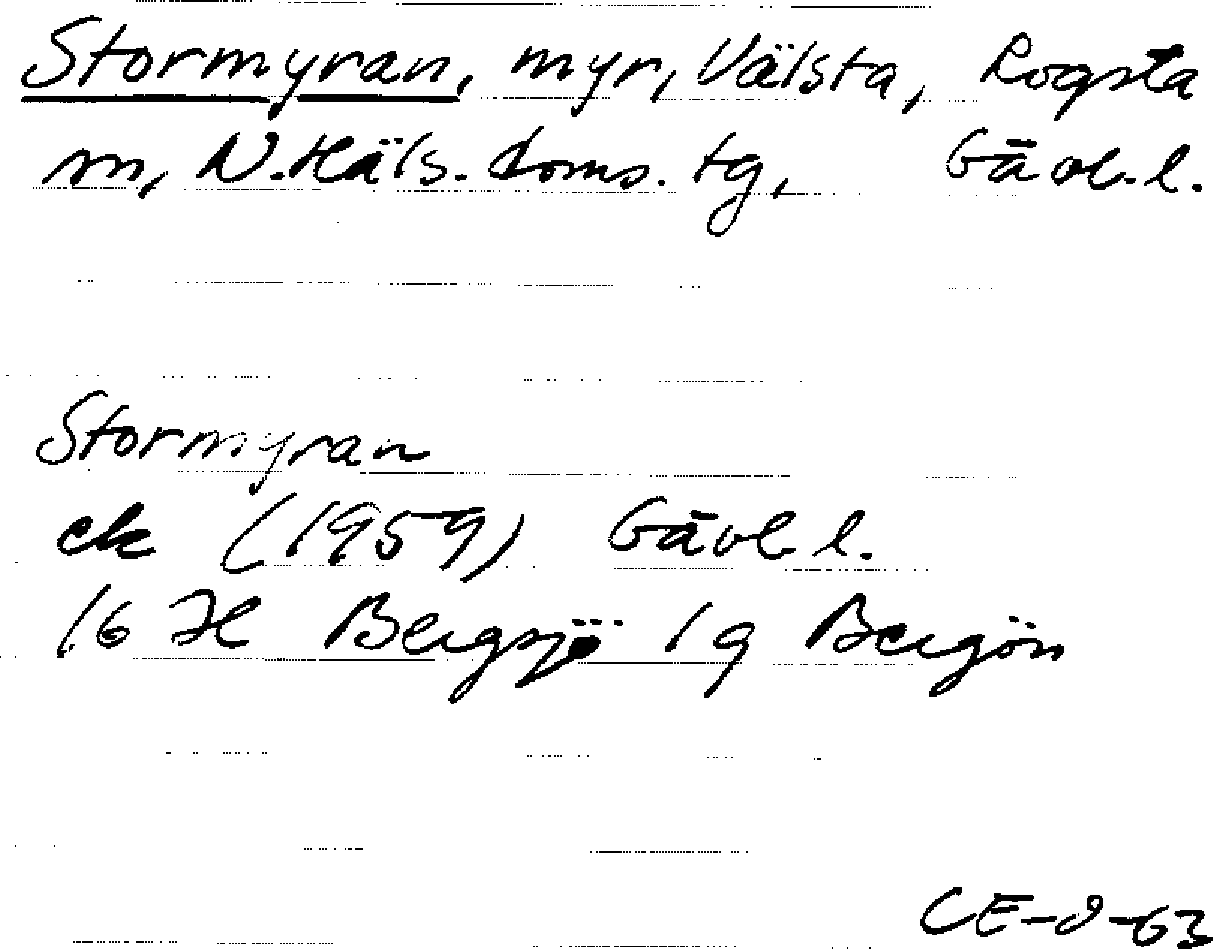 Stormyran, myr, Välsta, Rogsta
sn, N.Häls. doms. tg, Gävl.l.
Stormyran
ek (1959) Gävl. l.
16 H Bergsjö 1g Bergön
CE-J-63